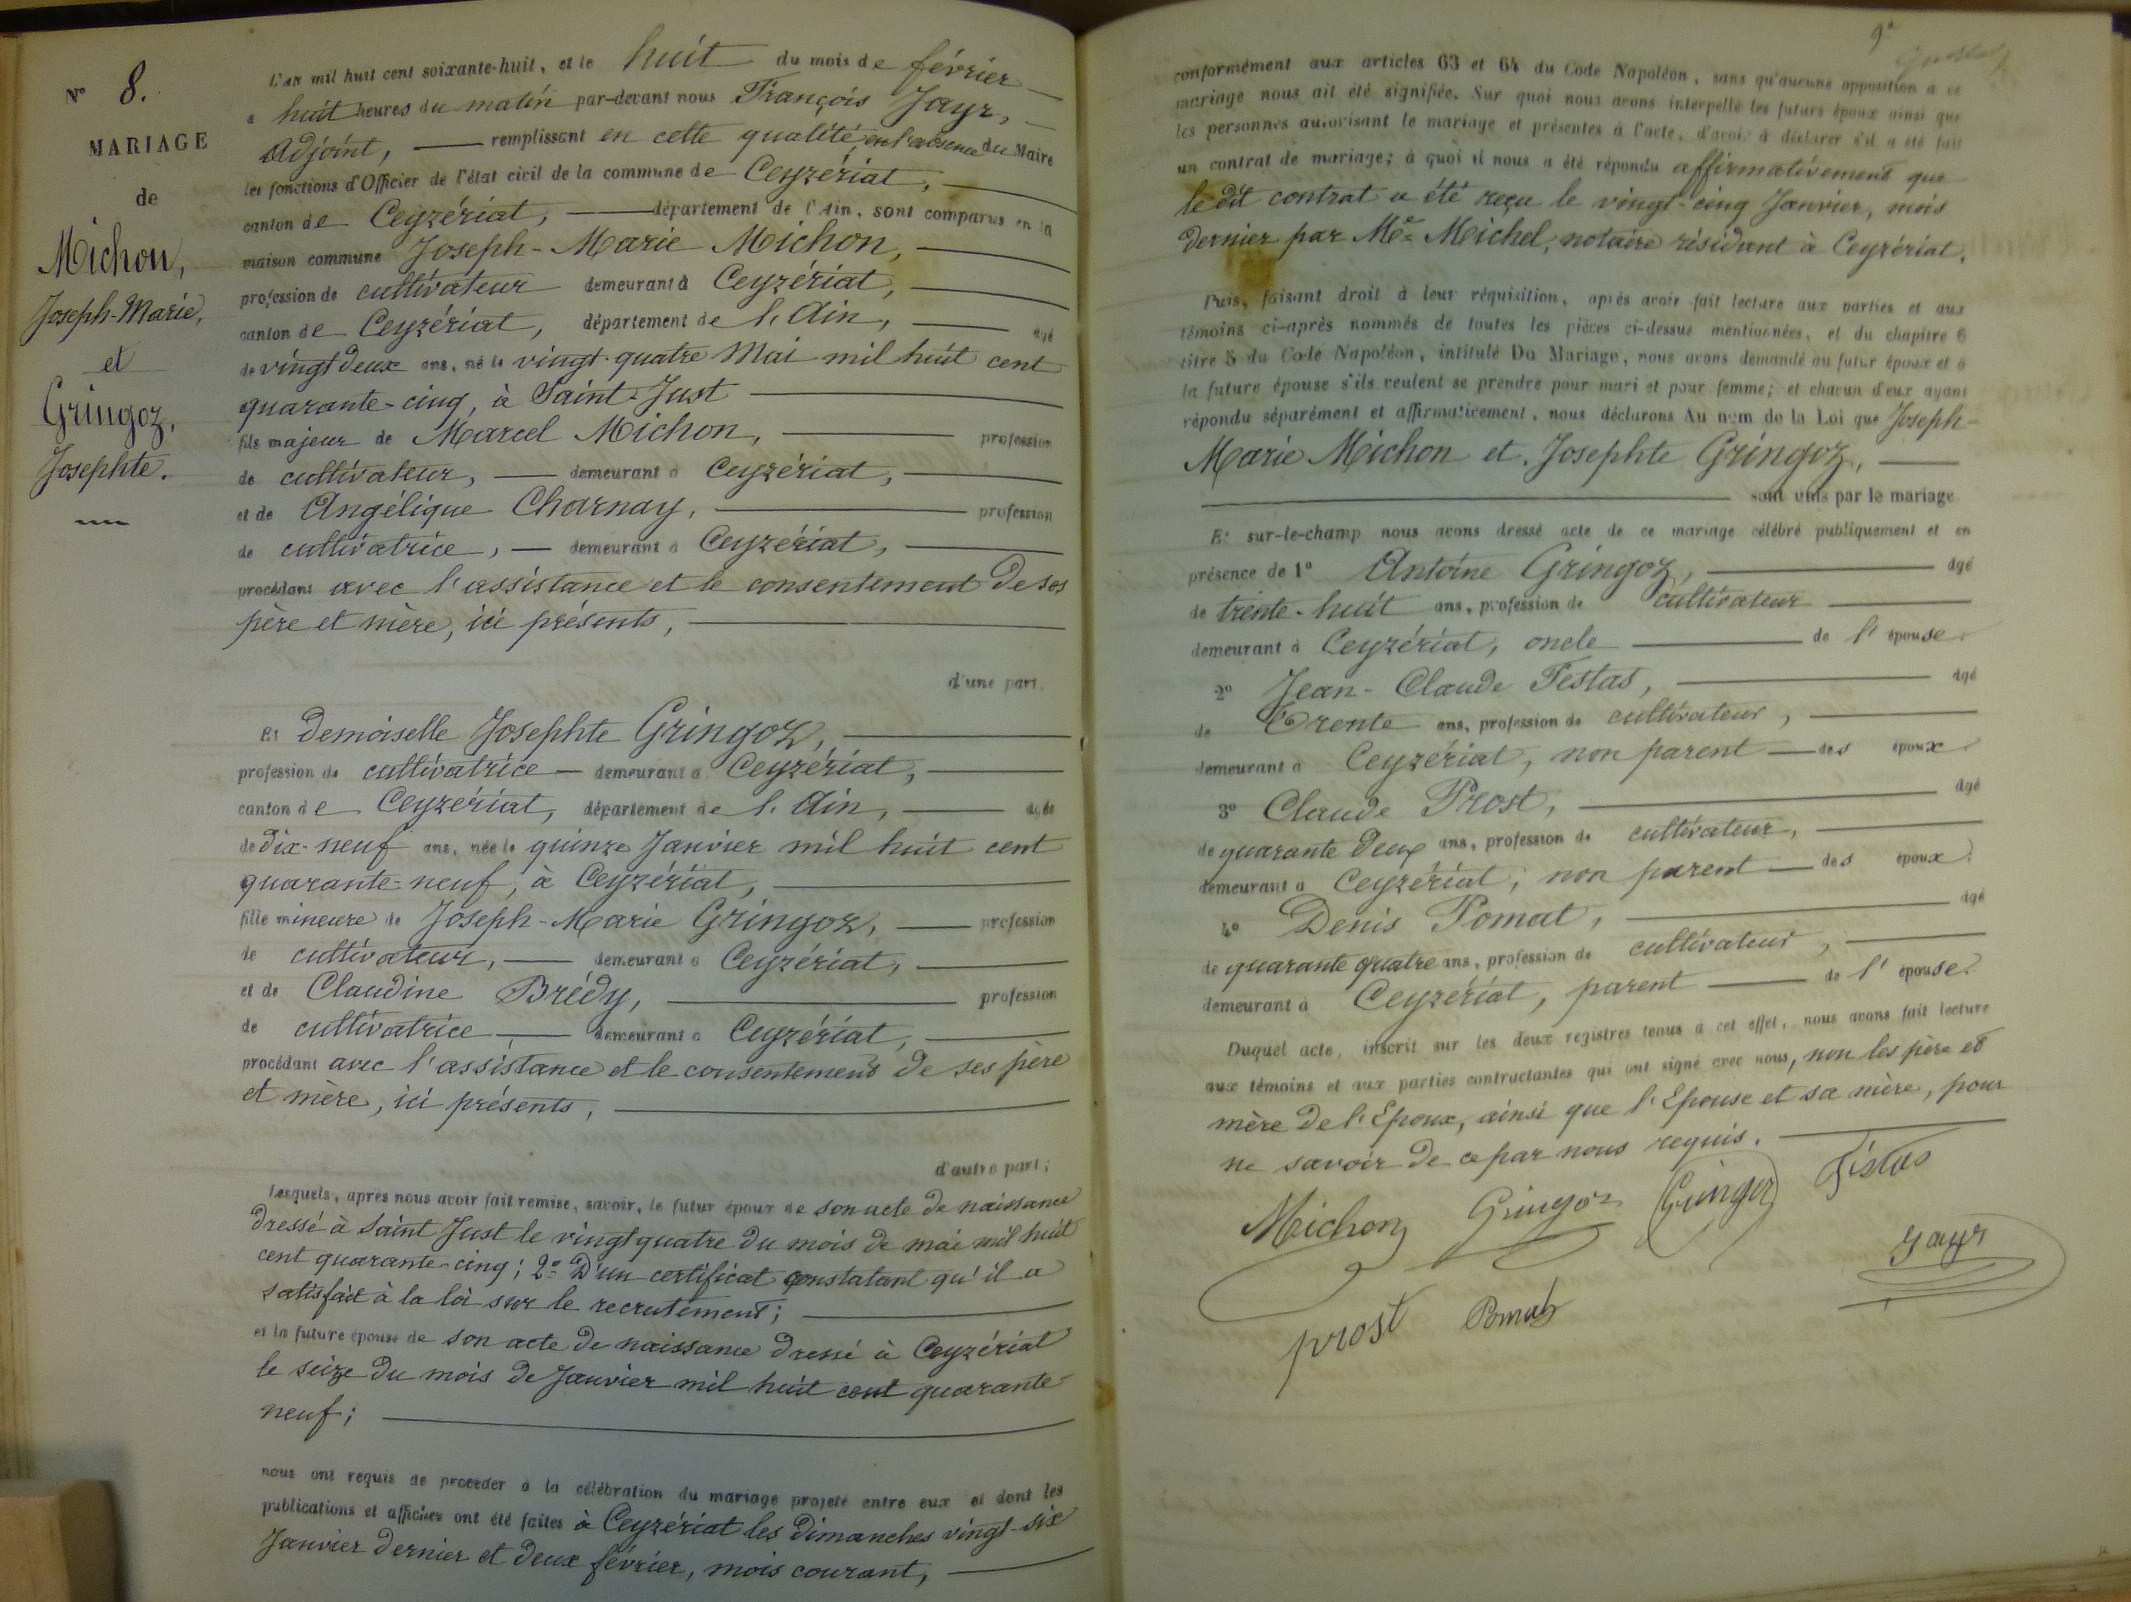 N° 8.
MARIAGE
de
Michon,
Joseph-Marie,
et
Gringoz,
Josephte.
L'an mil huit cent soixante-huit, et le huit du mois de février
a huit heures du matin par-devant nous François Jayr,
Adjoint, remplissant en cette qualité, en l'absence du Maire
les fonctions d'Officier de l'état civil de la commune de Ceyzériat,
canton de Ceyzériat, département de l'Ain, sont comparus en la
maison commune Joseph-Marie Michon,
profession de cultivateur demeurant à Ceyzériat,
canton de Ceyzériat, département de l'Ain, âgé
de vingt deux ans, né le vingt-quatre Mai mil huit cent
quarante-cinq, à Saint-Just
fils majeur de Marcel Michon, profession
de cultivateur, demeurant à Ceyzériat,
et de Angélique Charnay, profession
de cultivatrice, demeurant à Ceyzériat,
procédant avec l'assistance et le consentement de ses
père et mère, ici présents,
d'une part.
Et Demoiselle Josephte Gringoz,
profession de cultivatrice demeurant à Ceyzériat,
canton de Ceyzériat, département de l'Ain, âgée
de dix-neuf ans, née le quinze Janvier mil huit cent
quarante-neuf, à Ceyzériat,
fille mineure de Joseph-Marie Gringoz, profession
de cultivateur, demeurant à Ceyzériat,
et de Claudine Brédy, profession
de cultivatrice, demeurant à Ceyzériat,
procédant avec l'assistance et le consentement de ses père
et mère, ici présents,
d'autre part;
Lesquels, après nous avoir fait remise, savoir, le futur époux de son acte de naissance
dressé à Saint Just le vingt quatre du mois de mai mil huit
cent quarante-cinq; 2° D'un certificat constatant qu'il a
satisfait à la loi sur le recrutement;
et la future épouse de son acte de naissance dressé à Ceyzériat
le seize du mois de Janvier mil huit cent quarante-
neuf;
nous ont requis de procéder à la célébration du mariage projeté entre eux et dont les
publications et affiches ont été faites à Ceyzériat les dimanches vingt-six
Janvier dernier et deux février, mois courant,
conformément aux articles 63 et 64 du Code Napoléon, sans qu'aucune opposition à ce
mariage nous ait été signifiée. Sur quoi nous avons interpellé les futurs époux ainsi que
les personnes autorisant le mariage et présentes à l'acte, d'avoir à déclarer s'il a été fait
un contrat de mariage; à quoi il nous a été répondu affirmativement que
le dit contrat a été reçu le vingt-cinq Janvier, mois
dernier par Me Michel, notaire résidant à Ceyzériat.
Puis, faisant droit à leur réquisition, après avoir fait lecture aux parties et aux
témoins ci-après nommés de toutes les pièces ci-dessus mentionnées, et du chapitre 6
titre 5 du Code Napoléon, intitulé Du Mariage, nous avons demandé au futur époux et à
la future épouse s'ils veulent se prendre pour mari et pour femme; et chacun d'eux ayant
répondu séparément et affirmativement, nous déclarons Au nom de la Loi que Joseph-
Marie Michon et Josephte Gringoz,
sont unis par le mariage
Et sur-le-champ nous avons dressé acte de ce mariage célébré publiquement et en
présence de 1° Antoine Gringoz, âgé
de trente-huit ans, profession de cultivateur
demeurant à Ceyzériat, oncle de l'épouse.
2° Jean-Claude Festas, âgé
de Trente ans, profession de cultivateur,
demeurant à Ceyzériat, non parent des époux.
3° Claude Prost, âgé
de quarante deux ans, profession de cultivateur,
demeurant à Ceyzériat, non parent des époux.
4° Denis Pomat, âgé
de quarante quatre ans, profession de cultivateur,
demeurant à Ceyzériat, parent de l'épouse.
Duquel acte, inscrit sur les deux registres tenus à cet effet, nous avons fait lecture
aux témoins et aux parties contractantes qui ont signé avec nous, non les père et
mère de l'Epoux, ainsi que l'Epouse et sa mère, pour
ne savoir de ce par nous requis.
Michon Gringoz Gringoz Festas
Jayr
prost Pomat